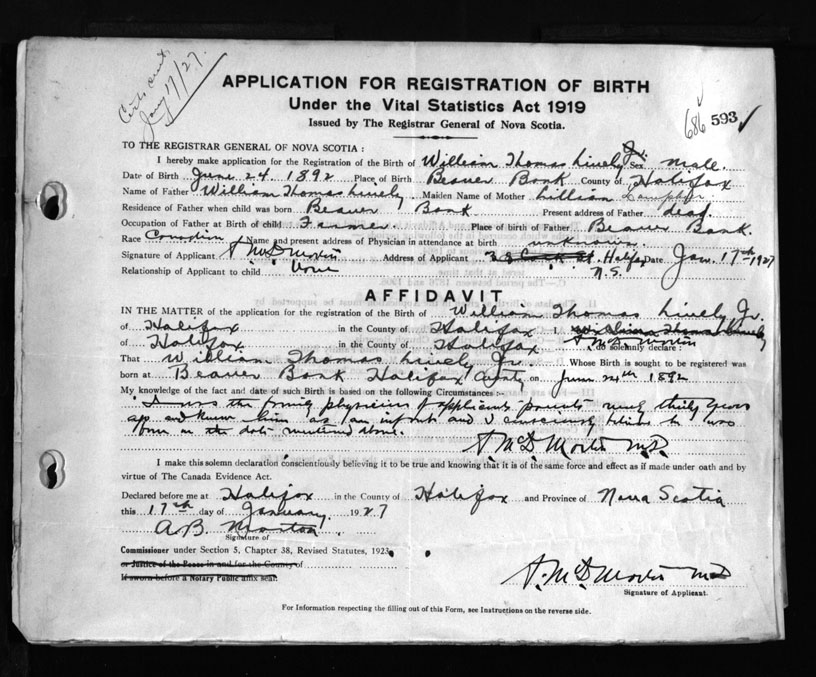 Certs sent.
Jany 17/27.
APPLICATION FOR REGISTRATION OF BIRTH
Under the Vital Statistics Act 1919
Issued by The Registrar General of Nova Scotia.
686 593
TO THE REGISTRAR GENERAL OF NOVA SCOTIA :
I hereby make application for the Registration of the Birth of William Thomas Lively Jr. Sex Male.
Date of Birth June 24. 1892 Place of Birth Beaver Bank County of Halifax
Name of Father William Thomas Lively. Maiden Name of Mother Lillian
Residence of Father when child was born Beaver Bank Present address of Father dead.
Occupation of Father at Birth of child Farmer. Place of birth of Father Beaver Bank.
Race Canadian Name and present address of Physician in attendance at birth unknown.
Signature of Applicant Address of Applicant Halifax Date Jan. 17th 1927
N.S.
Relationship of Applicant to child None
AFFIDAVIT
IN THE MATTER of the application for the registration of the Birth of William Thomas Lively Jr.
of Halifax in the County of Halifax I, William Thomas Lively
of Halifax in the County of Halifax do solemnly declare :
That William Thomas Lively Jr. Whose Birth is sought to be registered was
born at Beaver Bank Halifax County on June 24th 1892
My knowledge of the fact and date of such Birth is based on the following Circumstances :-
I was the family physician of applicants parents nearly thirty years
ago and knew him as an infant and I conciously believe he was
born on the date mentioned above.
M.D.
I make this solemn declaration conscientiously believing it to be true and knowing that it is of the same force and effect as if made under oath and by
virtue of The Canada Evidence Act.
Declared before me at Halifax in the County of Halifax and Province of Nova Scotia
this 17th day of January 1927
A.B. Morton
Signature of
Commissioner under Section 5, Chapter 38, Revised Statutes, 1923.
or Justice of the Peace in and for the County of
If sworn before a Notary Public affix seal.
M.D.
Signature of Applicant.
For Information respecting the filling out of this Form, see Instructions on the reverse side.